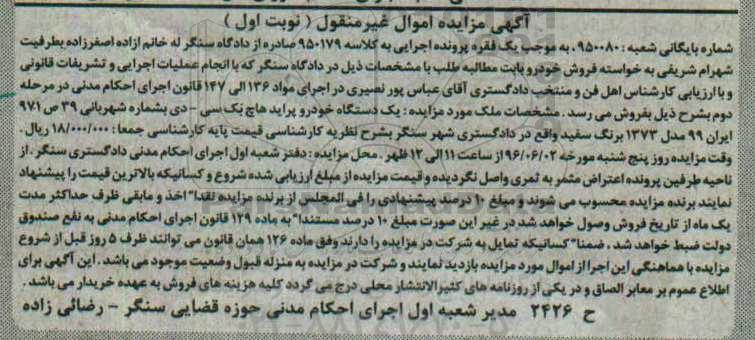 آگهی مزایده اموال غیرمنقول ( نوبت اول )
شماره بایگانی شعبه : ۹۵۰۰۸۰ ، به موجب یک فقره پرونده اجرایی به کلاسه ۹۵۰۱۷۹ صادره از دادگاه سنگر له خانم ازاده اصغرزاده بطرفیت
شهرام شریفی به خواسته فروش خودرو بابت مطالبه طلب با مشخصات ذیل در دادگاه سنگر که با انجام عملیات اجرایی و تشریفات قانونی
و با ارزیابی کارشناس اهل فن و منتخب دادگستری آقای عباس پور نصیری در اجرای مواد ۱۳۶ الی ۱۴۷ قانون اجرای احکام مدنی در مرحله
دوم بشرح ذیل بفروش می رسد . مشخصات ملک مورد مزایده : یک دستگاه خودرو پراید هاچ بک سی - دی بشماره شهربانی ۳۹ ص ۹۷۱
ایران ۹۹ مدل ۱۳۷۳ برنگ سفید واقع در دادگستری شهر سنگر بشرح نظریه کارشناسی قیمت پایه کارشناسی جمعا : ۱۸/۰۰۰/۰۰۰ ریال .
وقت مزایده روز پنج شنبه مورخه ۹۶/۰۶/۰۲ از ساعت ۱۱ الی ۱۲ ظهر . محل مزایده : دفتر شعبه اول اجرای احکام مدنی دادگستری سنگر . از
ناحیه طرفین پرونده اعتراض مثمر به ثمری واصل نگردیده و قیمت مزایده از مبلغ ارزیابی شده شروع و کسانیکه بالاترین قیمت را پیشنهاد
نمایند برنده مزایده محسوب می شوند و مبلغ ۱۰ درصد پیشنهادی را فی المجلس از برنده مزایده نقدا" اخذ و مابقی ظرف حداکثر مدت
یک ماه از تاریخ فروش وصول خواهد شد در غیر این صورت مبلغ ۱۰ درصد مستندا" به ماده ۱۲۹ قانون اجرای احکام مدنی به نفع صندوق
دولت ضبط خواهد شد . ضمنا" کسانیکه تمایل به شرکت در مزایده را دارند وفق ماده ۱۲۶ همان قانون می توانند ظرف ۵ روز قبل از شروع
مزایده با هماهنگی این اجرا از اموال مورد مزایده بازدید نمایند و شرکت در مزایده به منزله قبول وضعیت موجود می باشد . این آگهی برای
اطلاع عموم بر معابر الصاق و در یکی از روزنامه های کثیرالانتشار محلی درج می گردد کلیه هزینه های فروش به عهده خریدار می باشد .
ح ۲۴۲۶ مدیر شعبه اول اجرای احکام مدنی حوزه قضایی سنگر - رضائی زاده